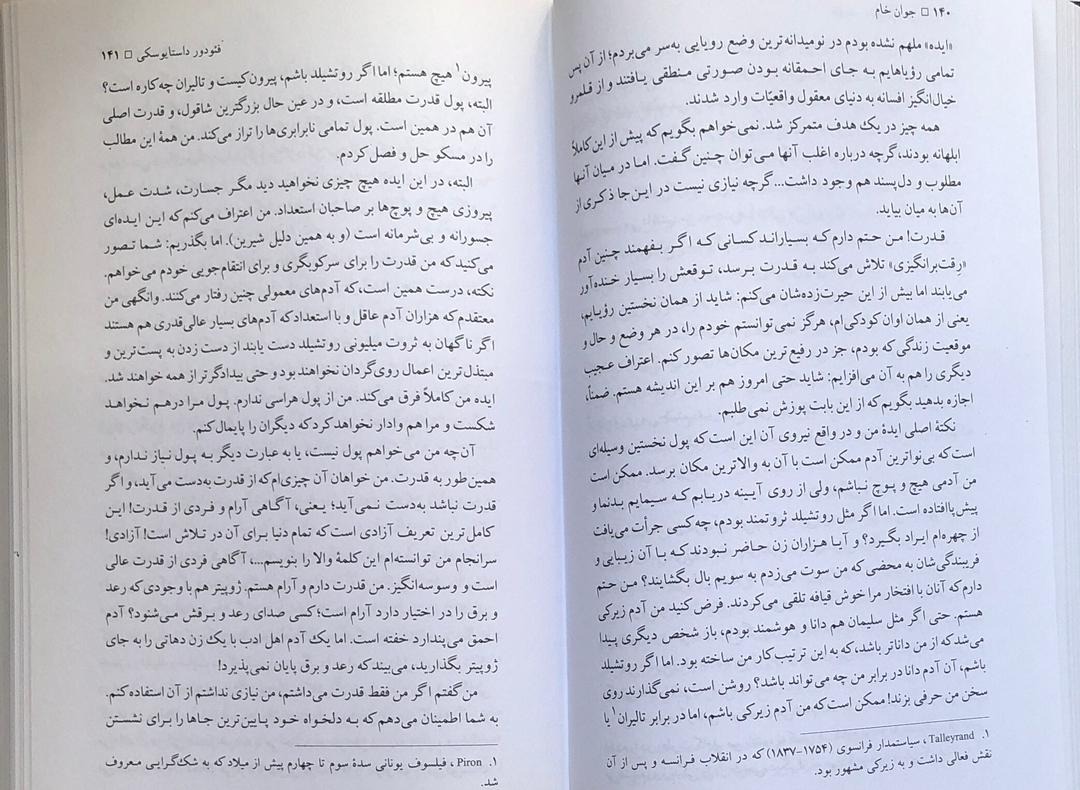 ۱۴۰ □ جوان خام
«ایده» ملهم نشده بودم در نومیدانه‌ترین وضع رویایی به‌سر می‌بردم؛ از آن پس
تمامی رؤیاهایم به جای احمقانه بودن صورتی منطقی یافتند و از قلمرو
خیال‌انگیز افسانه به دنیای معقول واقعیّات وارد شدند.
همه چیز در یک هدف متمرکز شد. نمی‌خواهم بگویم که پیش از این کاملاً
ابلهانه بودند، گرچه درباره اغلب آنها می‌توان چنین گفت. اما در میان آنها
مطلوب و دل‌پسند هم وجود داشت... گرچه نیازی نیست در این‌جا ذکری از
آن‌ها به میان بیاید.
قدرت! من حتم دارم که بسیاراند کسانی که اگر بفهمند چنین آدم
«رقت‌برانگیزی» تلاش می‌کند به قدرت برسد، توقعش را بسیار خنده‌آور
می‌یابند اما بیش از این حیرت‌زده‌شان می‌کنم: شاید از همان نخستین رؤیایم،
یعنی از همان اوان کودکی‌ام، هرگز نمی‌توانستم خودم را، در هر وضع و حال و
موقعیت زندگی که بودم، جز در رفیع‌ترین مکان‌ها تصور کنم. اعتراف عجیب
دیگری را هم به آن می‌افزایم: شاید حتی امروز هم بر این اندیشه هستم. ضمناً،
اجازه بدهید بگویم که از این بابت پوزش نمی‌طلبم.
نکتهٔ اصلی ایدهٔ من و در واقع نیروی آن این است که پول نخستین وسیله‌ای
است که بی‌نواترین آدم ممکن است با آن به والاترین مکان برسد. ممکن است
من آدمی هیچ و پوچ نباشم، ولی از روی آیینه دریابم که سیمایم بدنما و
پیش‌پاافتاده است. اما اگر مثل روتشیلد ثروتمند بودم، چه کسی جرأت می‌یافت
از چهره‌ام ایراد بگیرد؟ و آیا هزاران زن حاضر نبودند که با آن زیبایی و
فریبندگی‌شان به محضی که من سوت می‌زدم به سویم بال بگشایند؟ من حتم
دارم که آنان با افتخار مرا خوش قیافه تلقی می‌کردند. فرض کنید من آدم زیرکی
هستم. حتی اگر مثل سلیمان هم دانا و هوشمند بودم، باز شخص دیگری پیدا
می‌شد که از من داناتر باشد، که به این ترتیب کار من ساخته بود. اما اگر روتشیلد
باشم، آن آدم دانا در برابر من چه می‌تواند باشد؟ روشن است، نمی‌گذارند روی
سخن من حرفی بزند! ممکن است که من آدم زیرکی باشم، اما در برابر تالیران۱ یا
۱. Talleyrand، سیاستمدار فرانسوی (۱۷۵۴-۱۸۳۷) که در انقلاب فرانسه و پس از آن
نقش فعالی داشت و به زیرکی مشهور بود.
فئودور داستایوسکی □ ۱۴۱
پیرون۱ هیچ هستم؛ اما اگر روتشیلد باشم، پیرون کیست و تالیران چه کاره است؟
البته، پول قدرت مطلقه است، و در عین حال بزرگترین شاقول، و قدرت اصلی
آن هم در همین است. پول تمامی نابرابری‌ها را تراز می‌کند. من همهٔ این مطالب
را در مسکو حل و فصل کردم.
البته، در این ایده هیچ چیزی نخواهید دید مگر جسارت، شدت عمل،
پیروزی هیچ و پوچ‌ها بر صاحبان استعداد. من اعتراف می‌کنم که این ایده‌ای
جسورانه و بی‌شرمانه است (و به همین دلیل شیرین). اما بگذریم: شما تصور
می‌کنید که من قدرت را برای سرکوبگری و برای انتقام‌جویی خودم می‌خواهم.
نکته، درست همین است، که آدم‌های معمولی چنین رفتار می‌کنند. وانگهی من
معتقدم که هزاران آدم عاقل و با استعداد که آدم‌های بسیار عالی‌قدری هم هستند
اگر ناگهان به ثروت میلیونی روتشیلد دست یابند از دست زدن به پست‌ترین و
مبتذل‌ترین اعمال روی‌گردان نخواهند بود و حتی بیدادگرتر از همه خواهند شد.
ایده من کاملاً فرق می‌کند. من از پول هراسی ندارم. پول مرا درهم نخواهد
شکست و مرا هم وادار نخواهد کرد که دیگران را پایمال کنم.
آن‌چه من می‌خواهم پول نیست، یا به عبارت دیگر به پول نیاز ندارم، و
همین‌طور به قدرت. من خواهان آن چیزی‌ام که از قدرت به‌دست می‌آید، و اگر
قدرت نباشد به‌دست نمی‌آید؛ یعنی، آگاهی آرام و فردی از قدرت! این
کامل‌ترین تعریف آزادی است که تمام دنیا برای آن در تلاش است! آزادی!
سرانجام من توانسته‌ام این کلمهٔ والا را بنویسم...، آگاهی فردی از قدرت عالی
است و وسوسه‌انگیز. من قدرت دارم و آرام هستم. ژوپیتر هم با وجودی که رعد
و برق را در اختیار دارد آرام است؛ کسی صدای رعد و برقش می‌شنود؟ آدم
احمق می‌پندارد خفته است. اما یک آدم اهل ادب یا یک زن دهاتی را به جای
ژوپیتر بگذارید، می‌بیند که رعد و برق پایان نمی‌پذیرد!
من گفتم اگر من فقط قدرت می‌داشتم، من نیازی نداشتم از آن استفاده کنم.
به شما اطمینان می‌دهم که به دلخواه خود پایین‌ترین جاها را برای نشستن
۱. Piron، فیلسوف یونانی سدهٔ سوم تا چهارم پیش از میلاد که به شک‌گرایی معروف
شد.